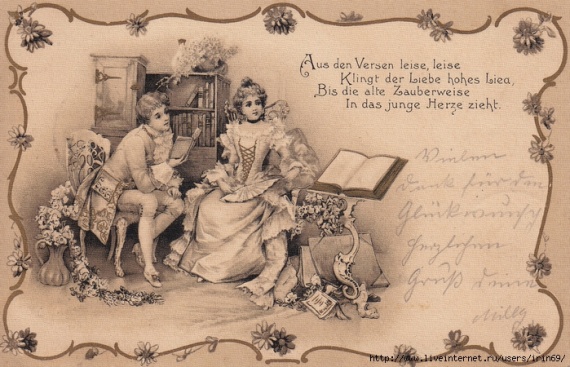 Aus den Versen leise, leise
Klingt der Liebe hohes Lied,
Bis die alte Zauberweise
In das junge Herze zieht.
Vielen
dank für den
Glückwunsch
herzlichen
Gruß deine
Milly
http://www.liveinternet.ru/users/irin69/